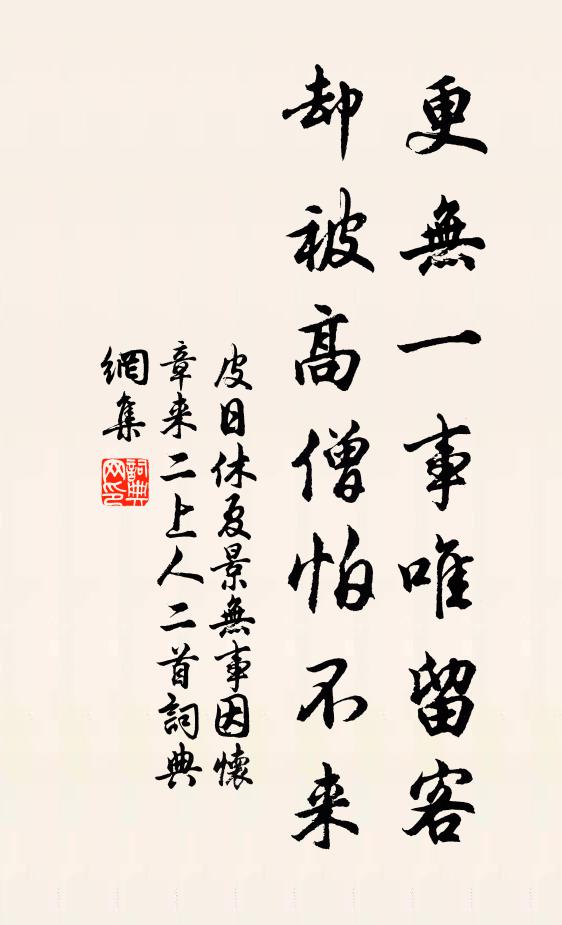 更無一事唯留客
却被高僧怕不来
皮日休夏景無事因懷
章来二上人二首詞典
網集
詞典网印